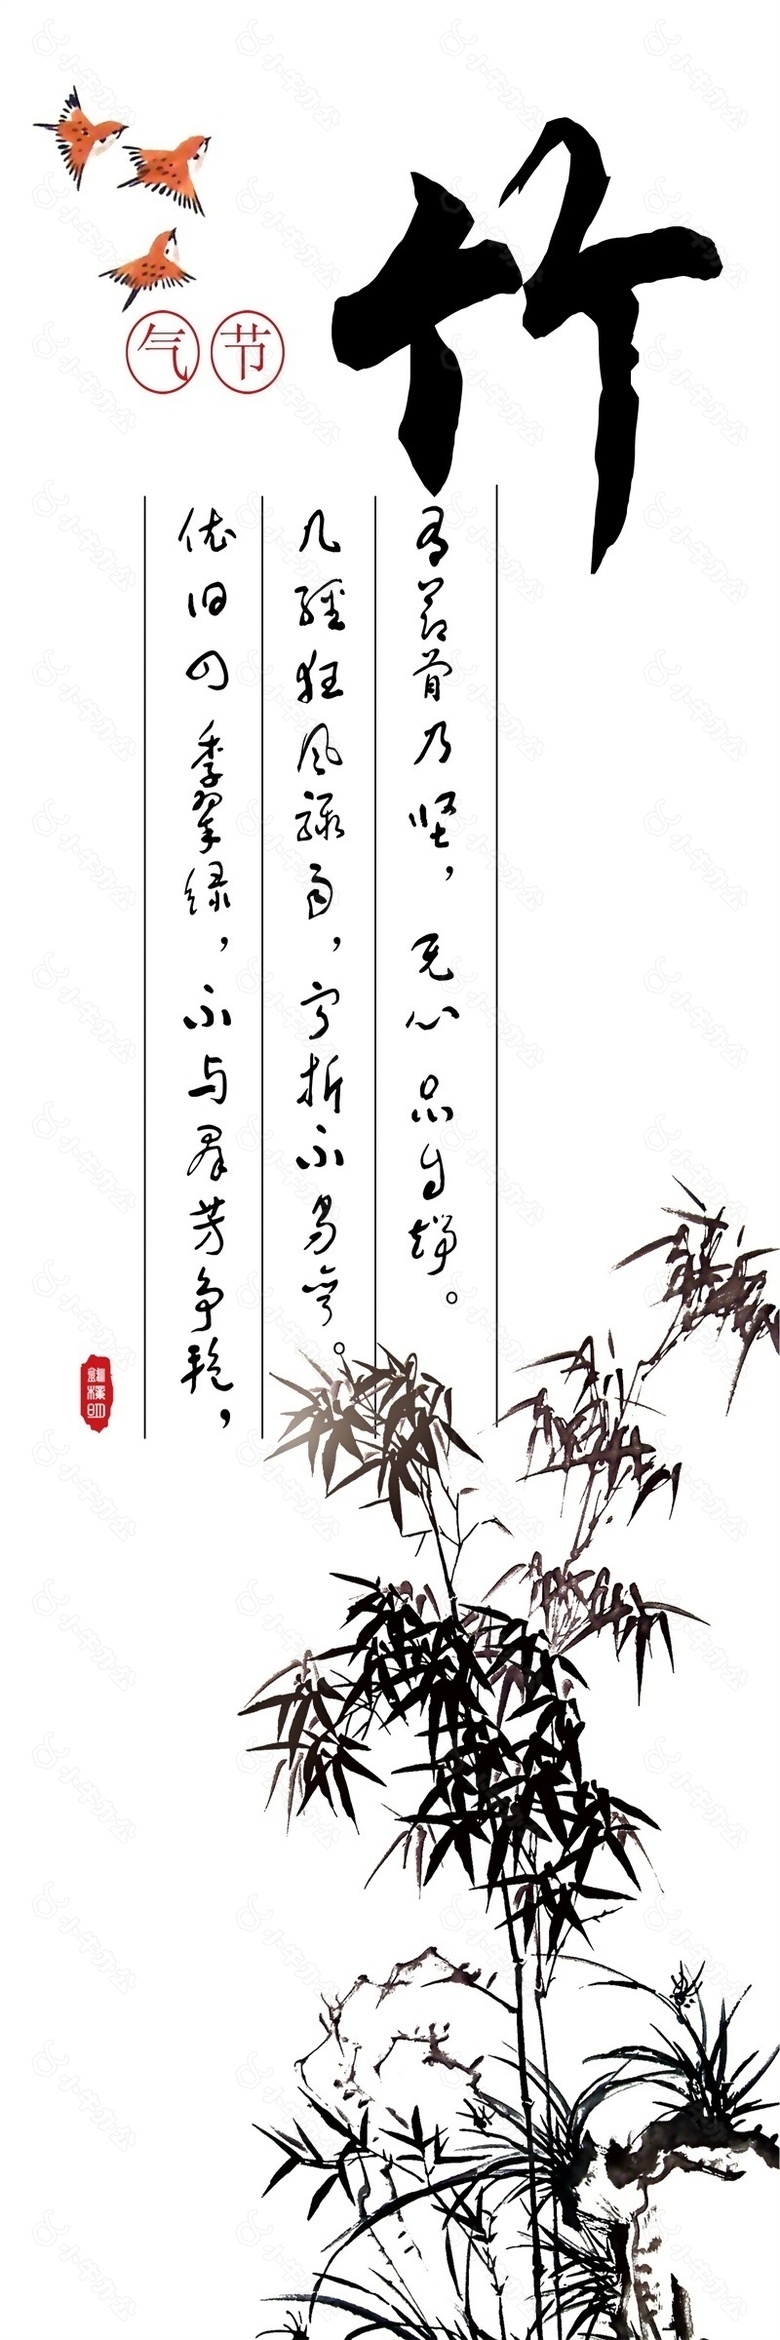 竹
气节
有节骨乃坚，无心品自端。
几经狂风骤雨，宁折不易弯。
依旧四季翠绿，不与群芳争艳，
小牛办公